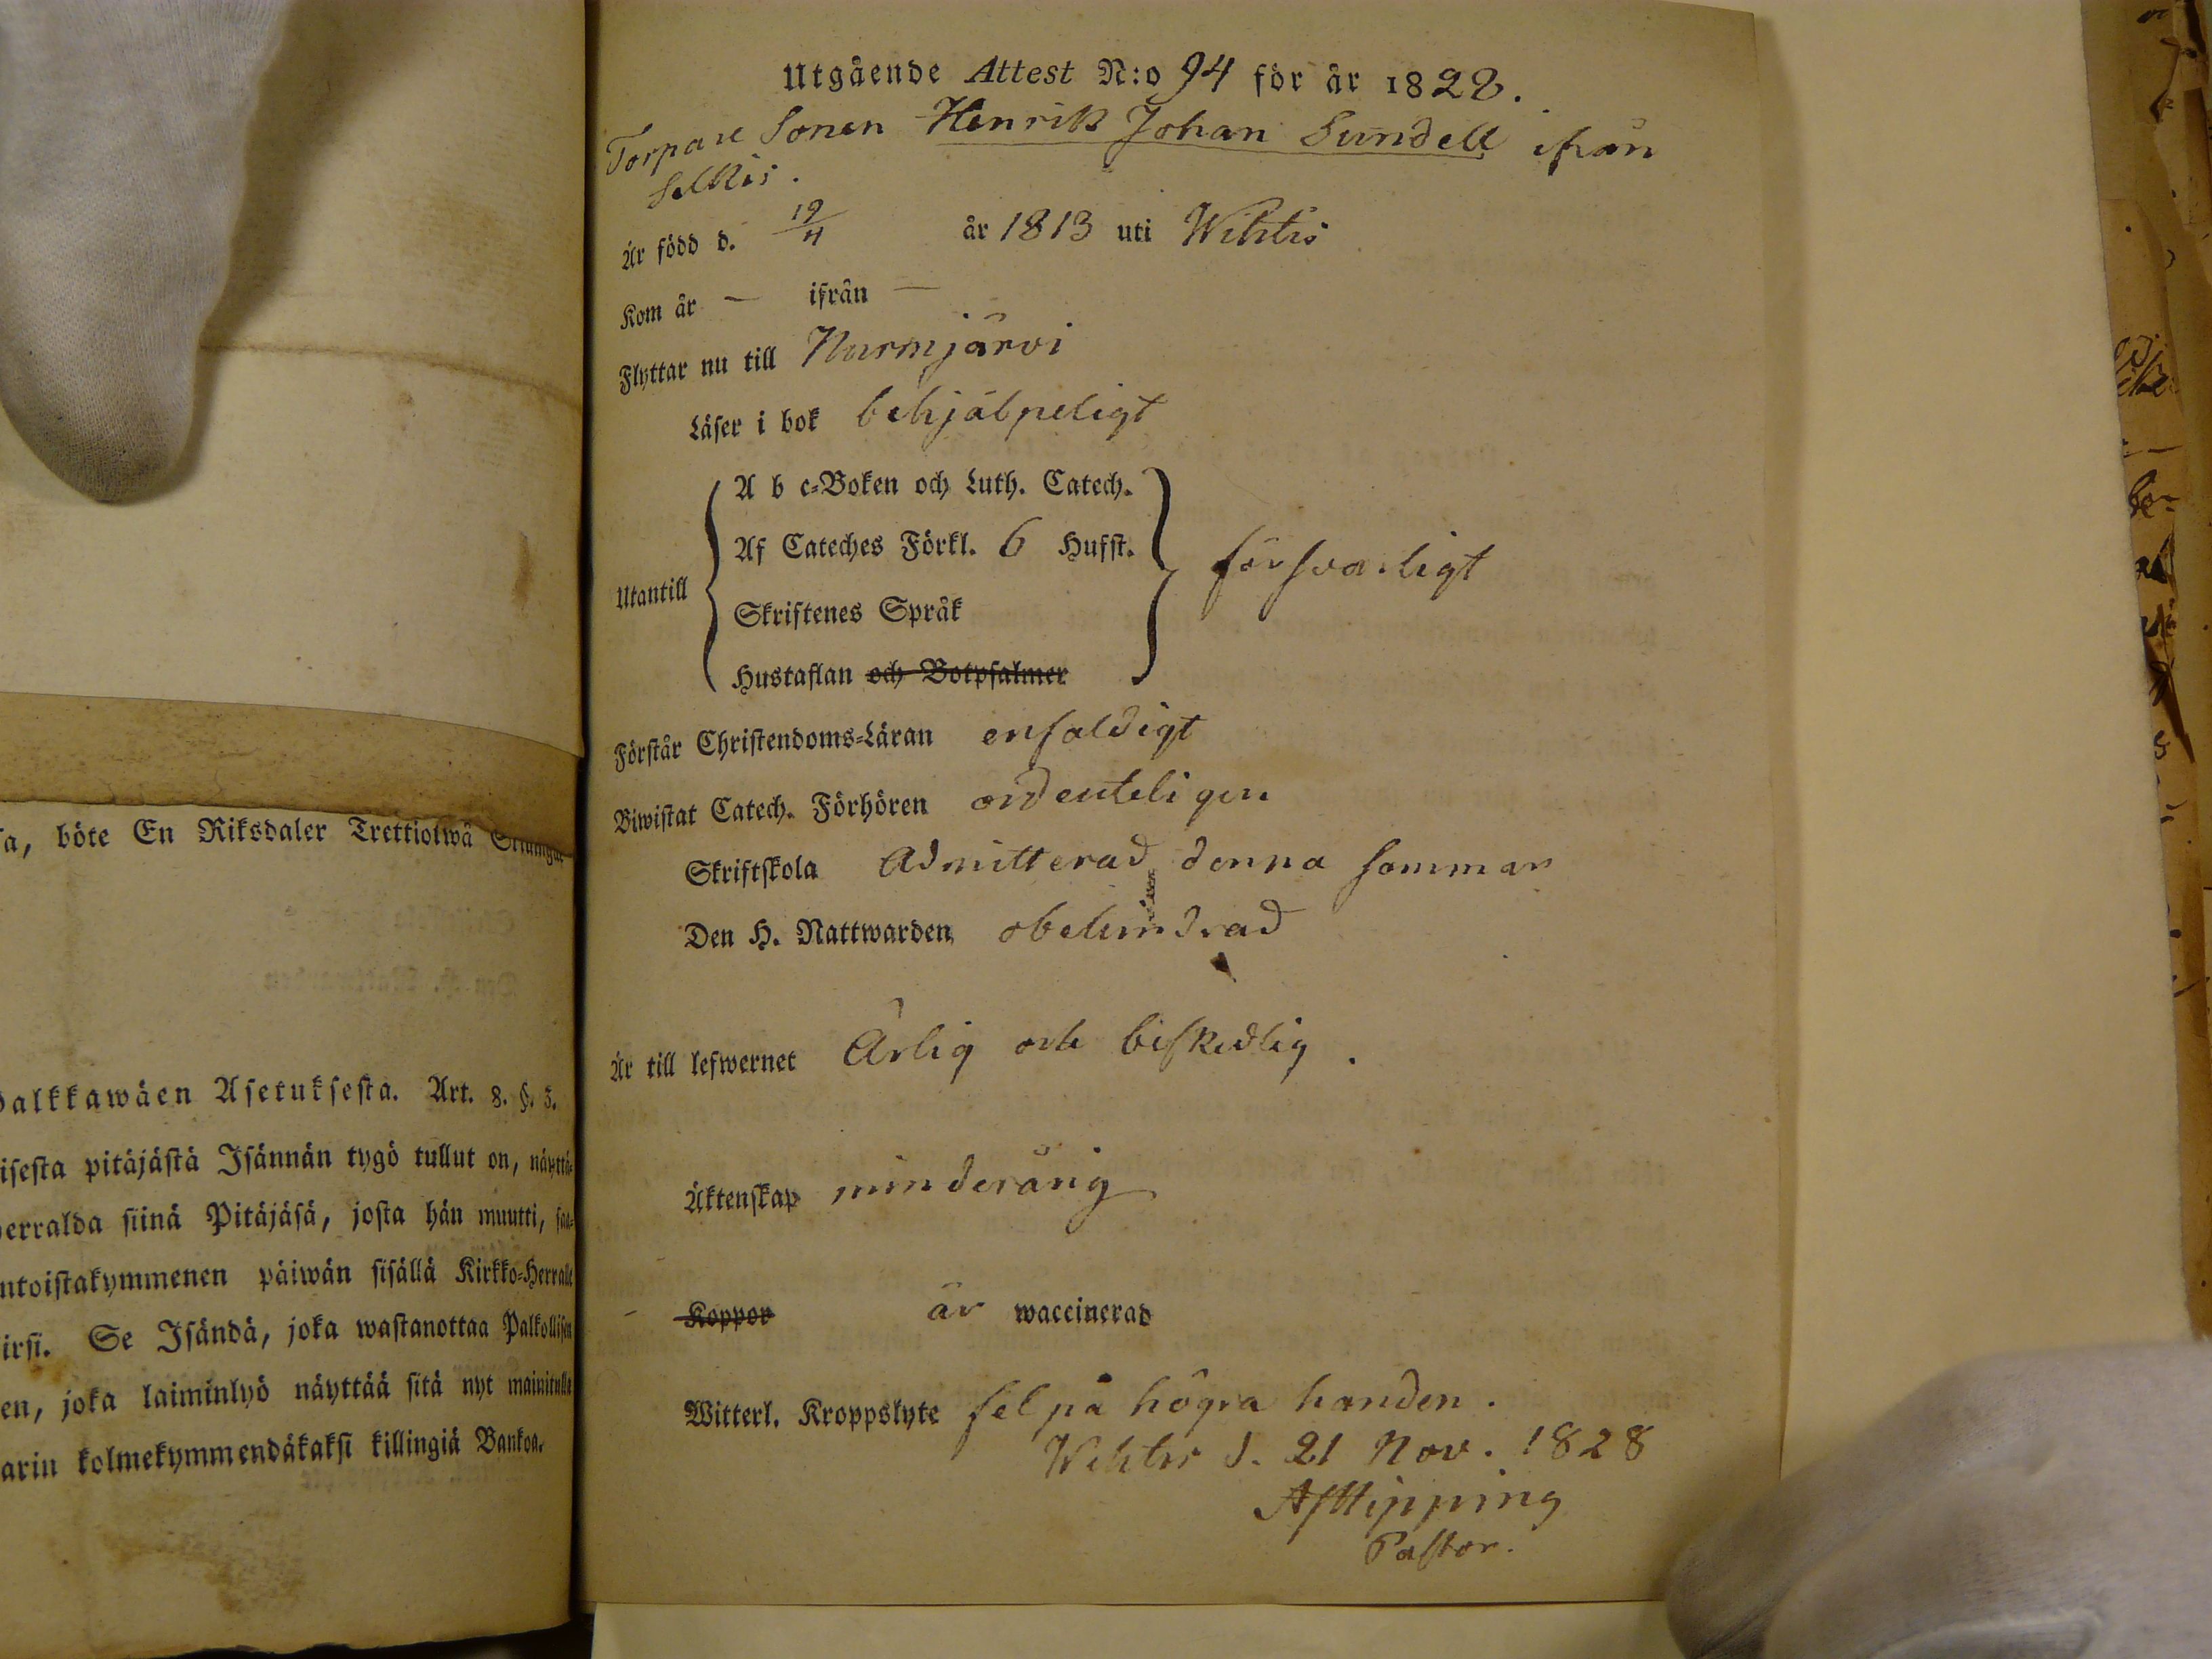 a, böte En Riksdaler Trettiotwå
alkkawäen Asetuksesta. Art. 8. §. 3.
isesta pitäjästä Isännän tygö tullut on, näyttä-
erralda siinä Pitäjäsä, josta hän muutti,
ntoistakymmenen päiwän sisällä Kirkko-Herralle
irsi. Se Isändä, joka wastanottaa Palkollisen
en, joka laiminlyö näyttää sitä nyt mainitulle
arin kolmekymmendäkaksi killingiä Bankoa.
Utgående Attest N:o 94 för år 1828.
Torpare Sonen Henrik Johan Sundell ifrån
Selkis.
Är född d. 19/4 år 1813 uti Wihtis
Kom år — ifrån —
Flyttar nu till Nurmjärvi
Läser i bok behjälpeligt
A b c-Boken och Luth. Catech.
Af Cateches Förkl. 6 Hufst.
Utantill försvarligt
Skriftenes Språk
Hustaflan och Botpsalmer
Förstår Christendoms-Läran enfaldigt
Biwistat Catech. Förhören ordenteligen
Skriftskola Admitterad denna sommar
Den H. Nattwarden obehindrad
Är till lefwernet Ärlig och beskedlig.
Äktenskap minderårig
- Koppor är waccinerad
Witterl. Kroppslyte fel på högra handen.
Wihtis d. 21 Nov. 1828
Pastor.